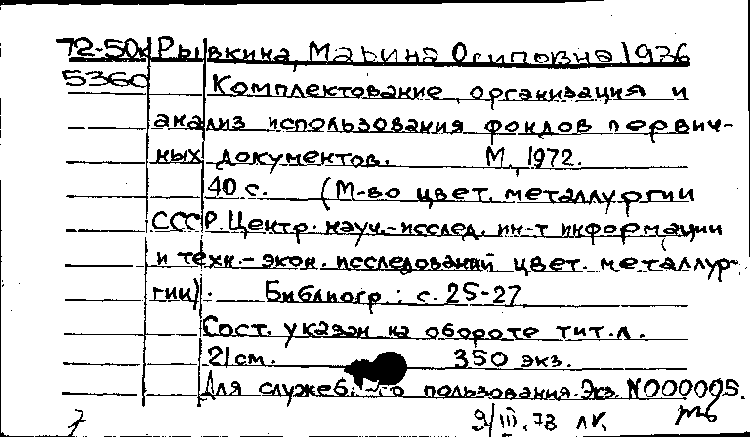 72-50к Рывкина, Марина Осиповна 1936
5360 Комплектование, организация и
анализ использования фондов первич-
ных документов. М., 1972.
40 с. (М-во цвет. металлургии
СССР. Центр. науч.-исслед. ин-т информации
и техн.-экон. исследований цвет. металлур-
гии). Библиогр.: с. 25-27
Сост. указан на обороте тит. л.
21 см. 350 экз.
Для служеб. пользования. Экз. N000005.
7 9/III.73